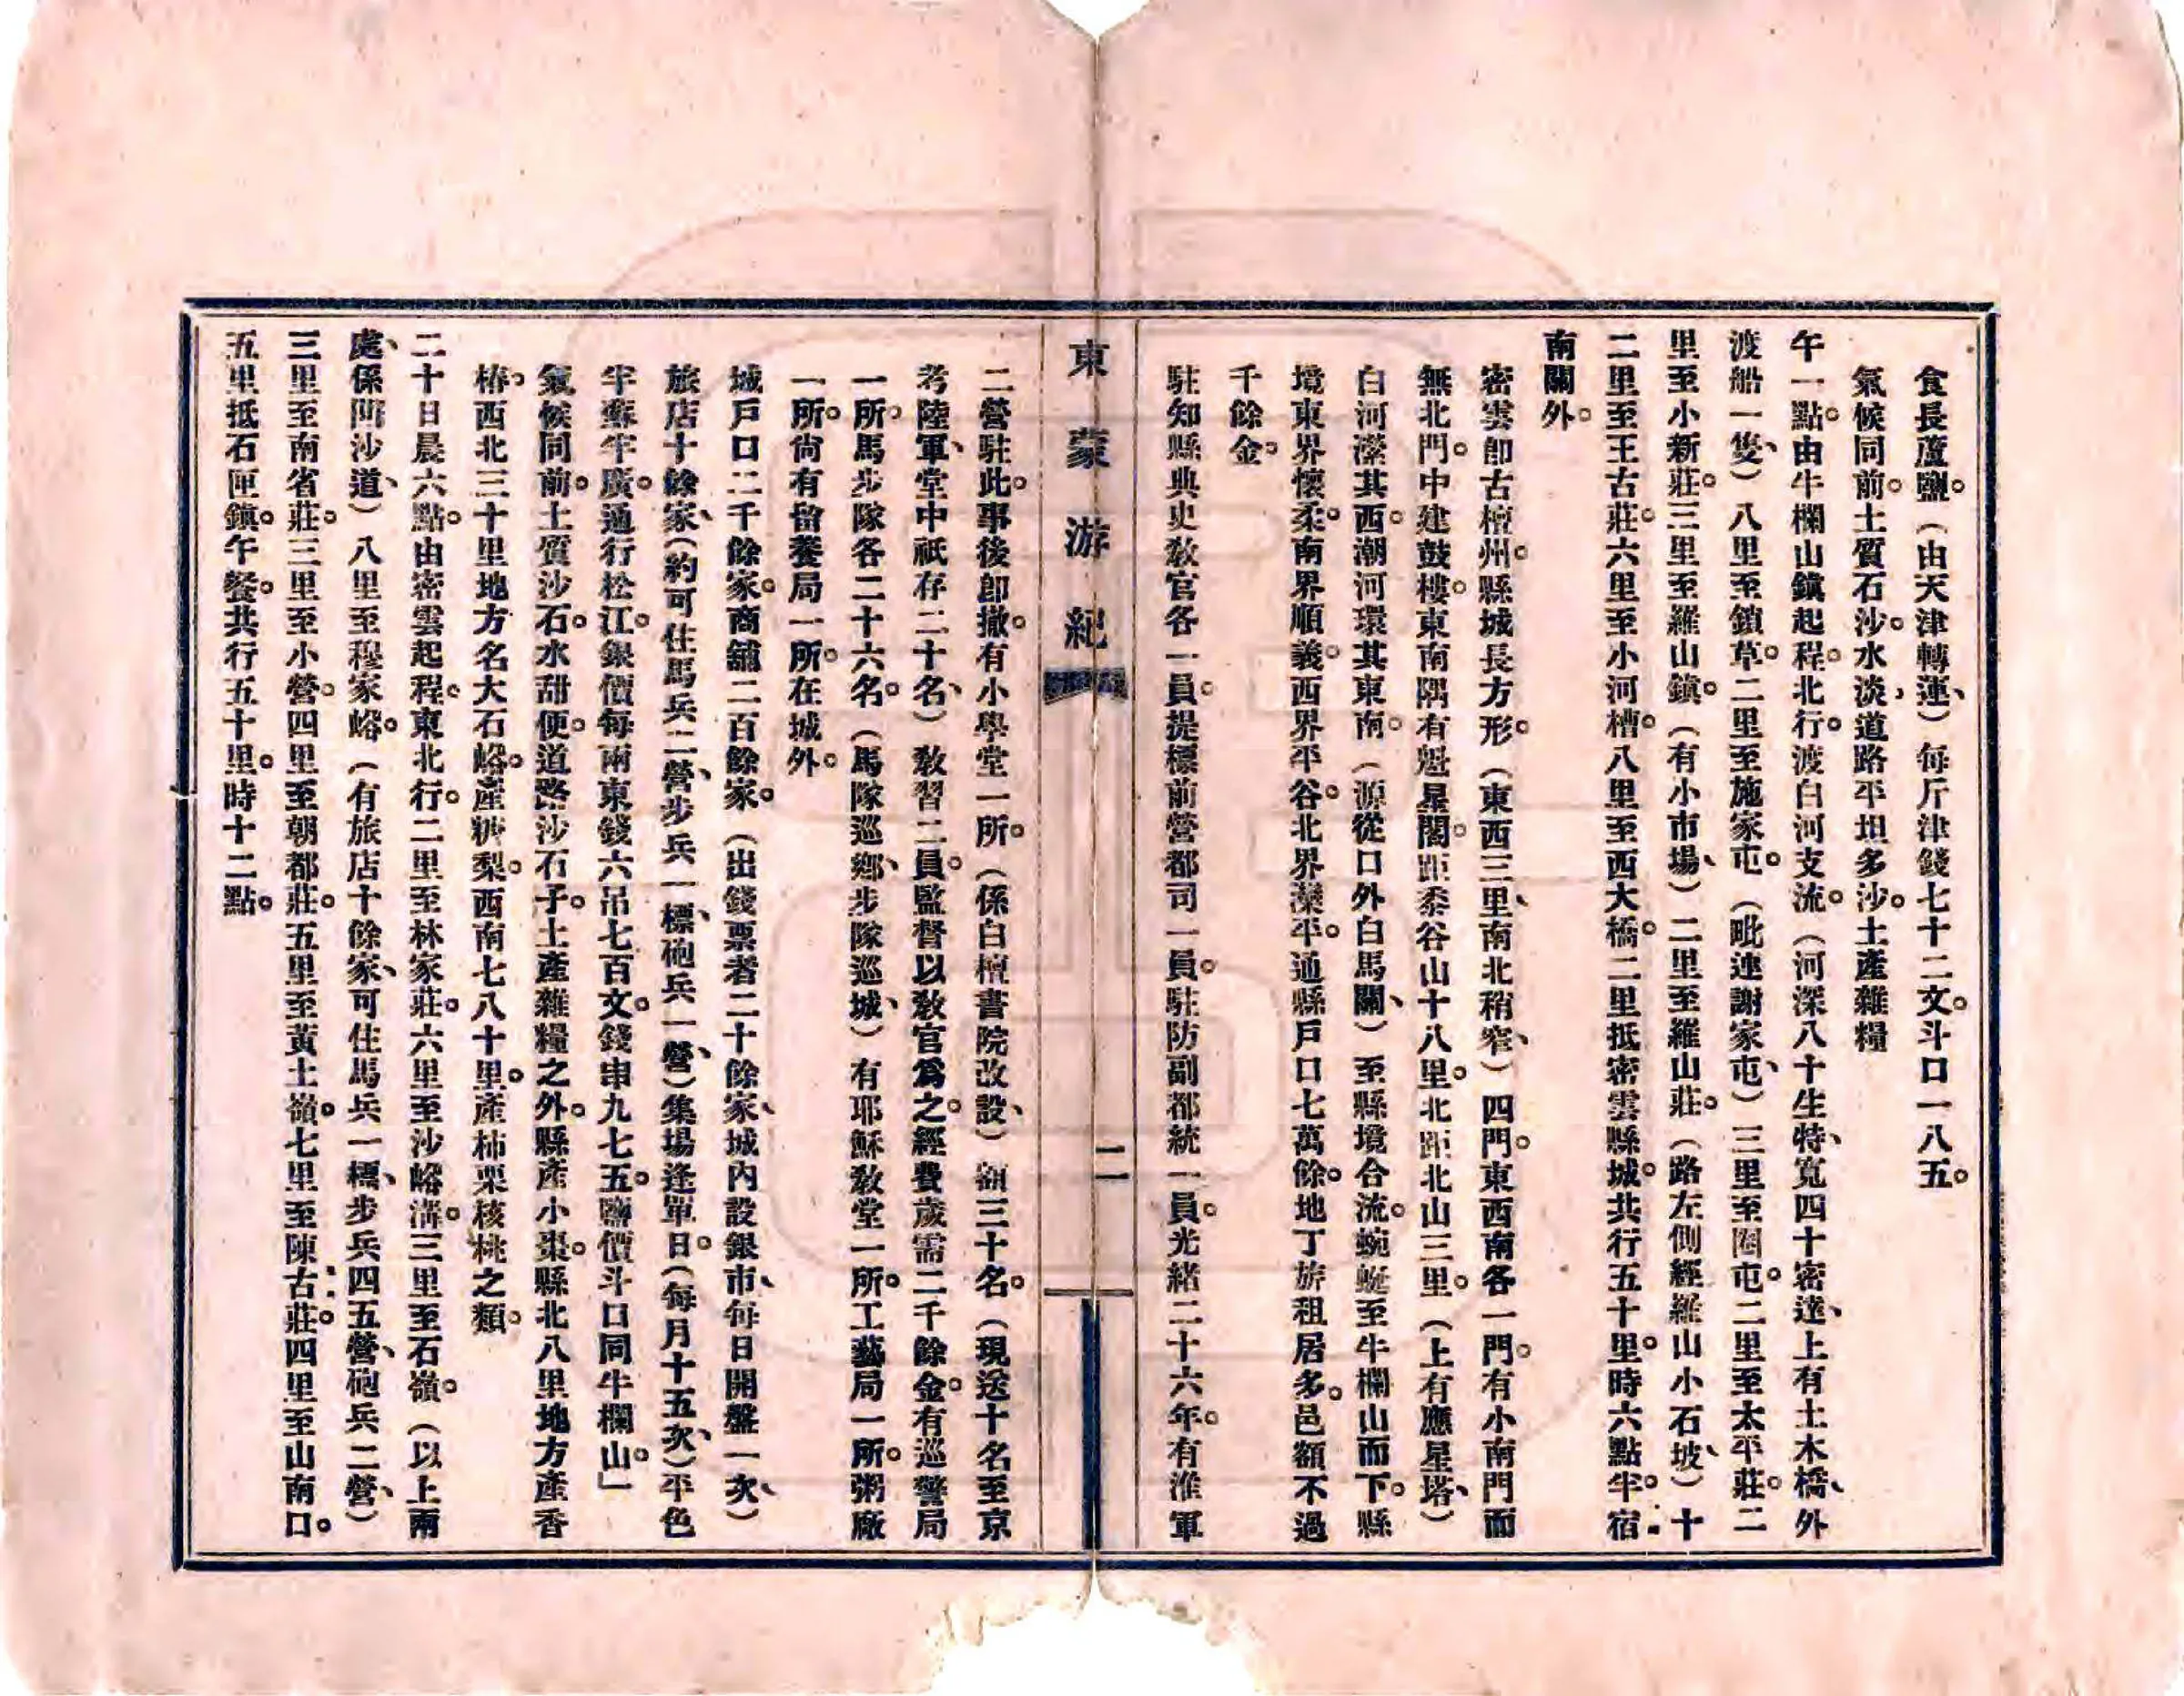 食長蘆鹽。（由天津轉運、）每斤津錢七十二文。斗口一八五。
氣候同前。土質石沙。水淡、道路平坦多沙。土產雜糧
午一點。由牛欄山鎮起程。北行。渡白河支流。（河深八十生特、寬四十密達、上有土木橋、外
渡船一隻、）八里至鎖草。二里至施家屯。（毗連謝家屯、）三里至圈屯。二里至太平莊。二
里至小新莊。三里至羅山鎮。（有小市場、）二里至羅山莊。（路左側經羅山小石坡、）十
二里至王古莊。六里至小河槽。八里至西大橋。二里抵密雲縣城。共行五十里。時六點半。宿
南關外。
密雲即古檀州。縣城長方形。（東西三里、南北稍窄、）四門。東西南各一門。有小南門而
無北門。中建鼓樓。東南隅有魁星閣。距黍谷山十八里。北距北山三里。（上有應星塔、）
白河瀠其西。潮河環其東南。（源從口外白馬關、）至縣境合流。蜿蜒至牛欄山而下。縣
境東界懷柔。南界順義。西界平谷。北界灤平。通縣戶口七萬餘。地丁旂租居多。邑額不過
千餘金。
駐知縣典史教官各一員。提標前營都司一員。駐防副都統一員。光緒二十六年。有淮軍
東蒙游紀
二
二營駐此。事後卽撤。有小學堂一所。（係白檀書院改設、）額三十名。（現送十名至京
考陸軍、堂中祇存二十名、）教習二員。監督以教官爲之。經費歲需二千餘金。有巡警局
一所。馬步隊各二十六名。（馬隊巡鄉、步隊巡城、）有耶穌教堂一所。工藝局一所。粥廠
一所。尙有留養局一所。在城外。
城戶口二千餘家。商舖二百餘家。（出錢票者二十餘家、城內設銀市、每日開盤一次、）
旅店十餘家、（約可住馬兵二營、步兵一標、砲兵一營、）集場逢單日。（每月十五次、）平色
半蘇半廣。通行松江。銀價每兩東錢六吊七百文。錢串九七五。鹽價斗口同牛欄山。」
氣候同前。土質沙石。水甜便。道路沙石子。土產雜糧之外。縣產小棗。縣北八里地方產香
椿。西北三十里地方名大石峪。產糖梨。西南七八十里。產柿栗核桃之類。
二十日晨六點。由密雲起程。東北行。二里至林家莊。六里至沙峪溝。三里至石嶺。（以上兩
處、係闊沙道、）八里至穆家峪。（有旅店十餘家、可住馬兵一標、步兵四五營、砲兵二營、）
三里至南省莊。三里至小營。四里至朝都莊。五里至黃土嶺。七里至陳古莊。四里至山南口。
五里抵石匣鎮。午餐。共行五十里。時十二點。